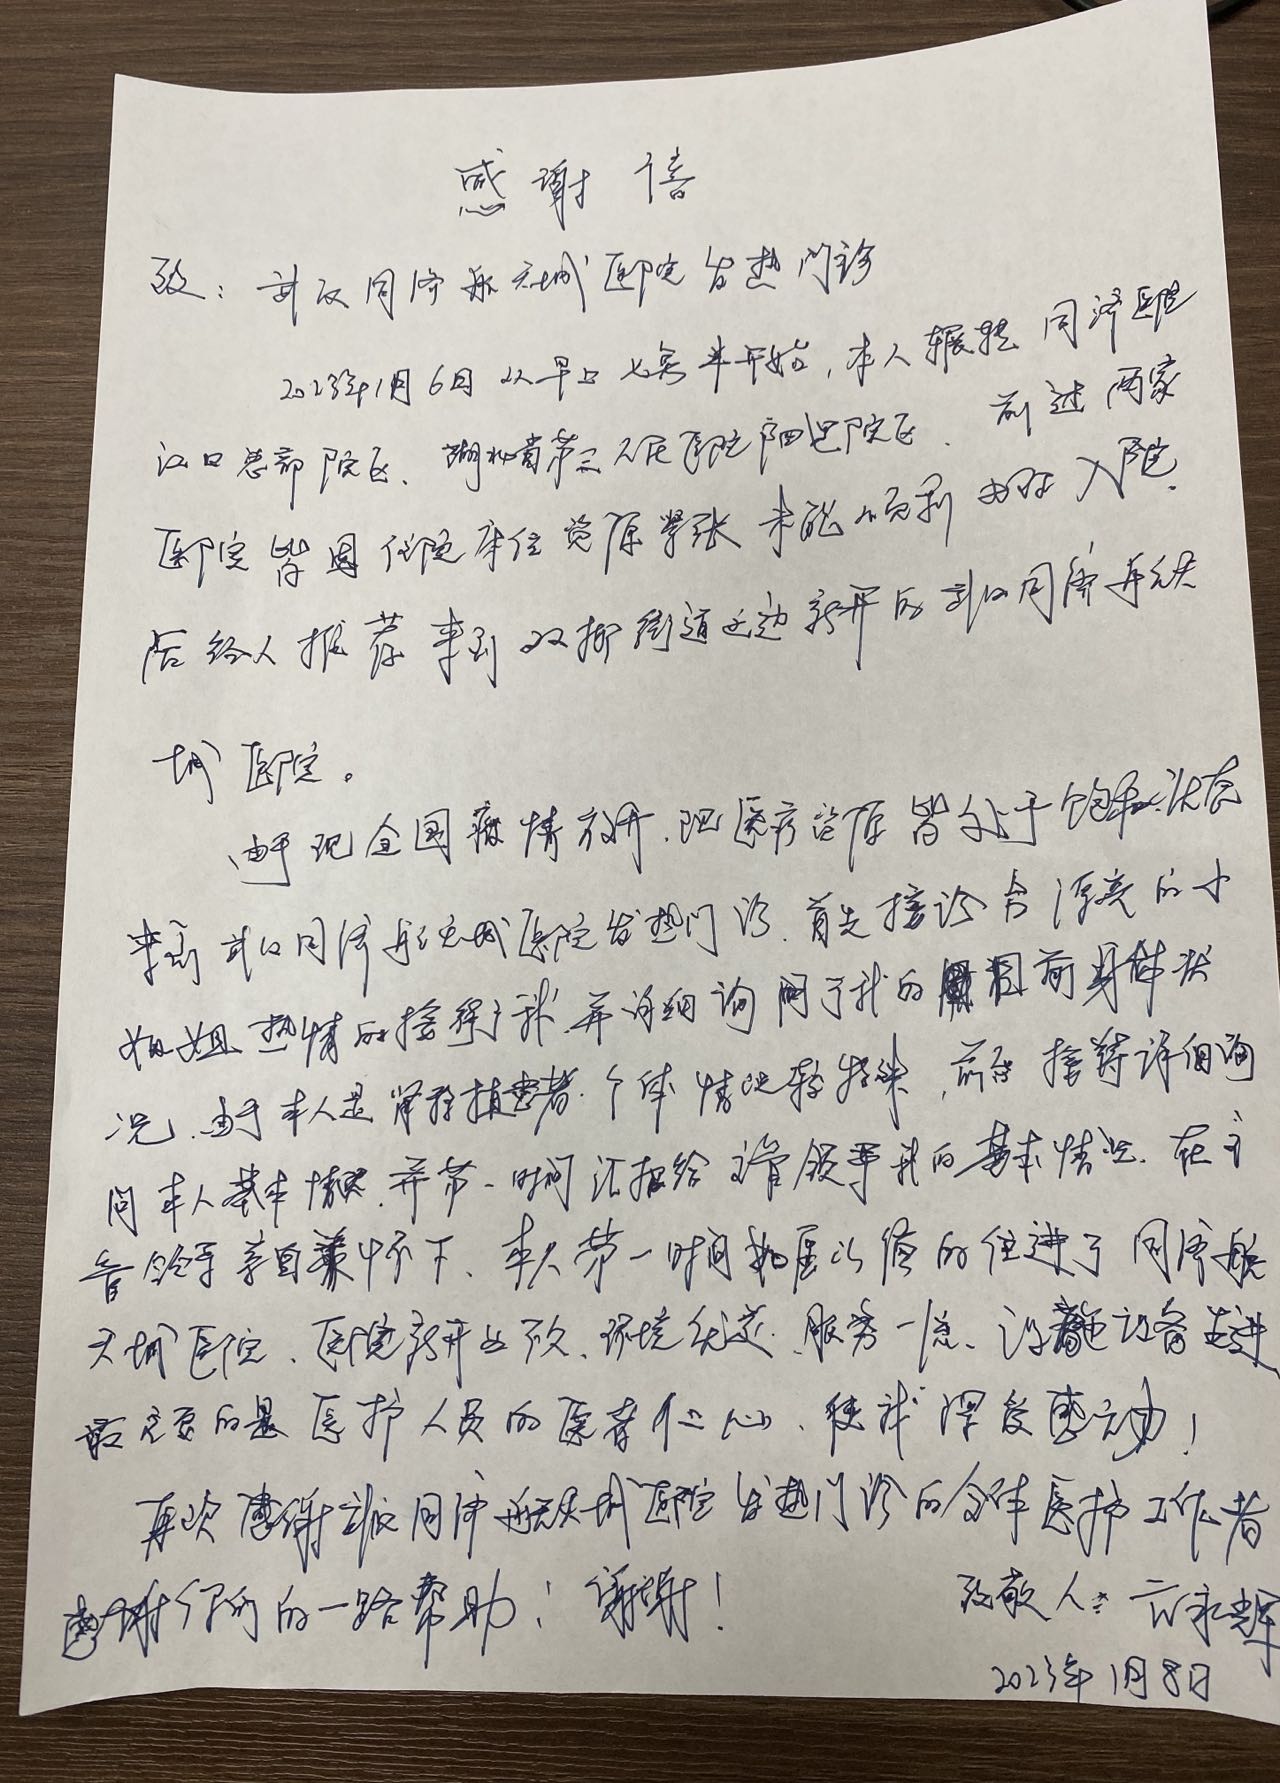 感谢信
致：武汉同济航天城医院发热门诊
2023年1月6日从早上七点半开始，本人辗转同济医院
汉口总部院区、湖北省第三人民医院阳逻院区、前述两家
医院皆因住院床位资源紧张未能顺利办理入院.
后经人推荐来到双柳街道这边新开的武汉同济航天
城医院。
由于现全国疫情放开.现医疗资源皆处于饱和状态
来到武汉同济航天城医院发热门诊.首先接诊台漂亮的小
姐姐热情的接待了我并详细询问了我的目前身体状
况.由于本人是肾移植患者.个体情况较特殊，前台接待详细询
问本人基本情况.并第一时间汇报给主管领导我的基本情况.在主
管领导亲自关怀下、本人第一时间如愿以偿的住进了同济航
天城医院、医院新开业致、环境优美.服务一流、设施设备先进
最主要的是医护人员的医者仁心、使我深受感动！
再次感谢武汉同济航天城医院发热门诊的全体医护工作者
感谢你们的一路帮助！谢谢！
致敬人：永辉
2023年1月8日